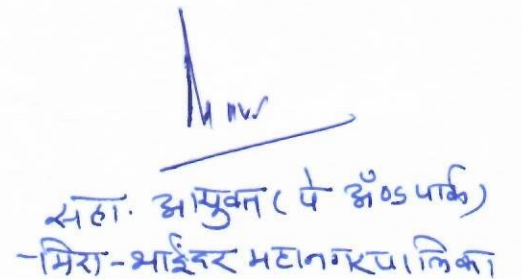 सहा. आयुक्त ( पे अँण्ड पार्क)
-मिरा-भाईंदर महानगरपालिका